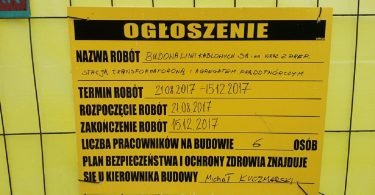 OGŁOSZENIE
NAZWA ROBÓT BUDOWA LINII KABLOWYCH SN
STACJĄ TRANSFORMATOROWĄ I AGREGATEM PRĄDOTWÓRCZYM
TERMIN ROBÓT 21.08.2017 - 15.12.2017
ROZPOCZĘCIE ROBÓT 21.08.2017
ZAKOŃCZENIE ROBÓT 15.12.2017
LICZBA PRACOWNIKÓW NA BUDOWIE 6 OSÓB
PLAN BEZPIECZEŃSTWA I OCHRONY ZDROWIA ZNAJDUJE
SIĘ U KIEROWNIKA BUDOWY Michał KUCZMARSKI